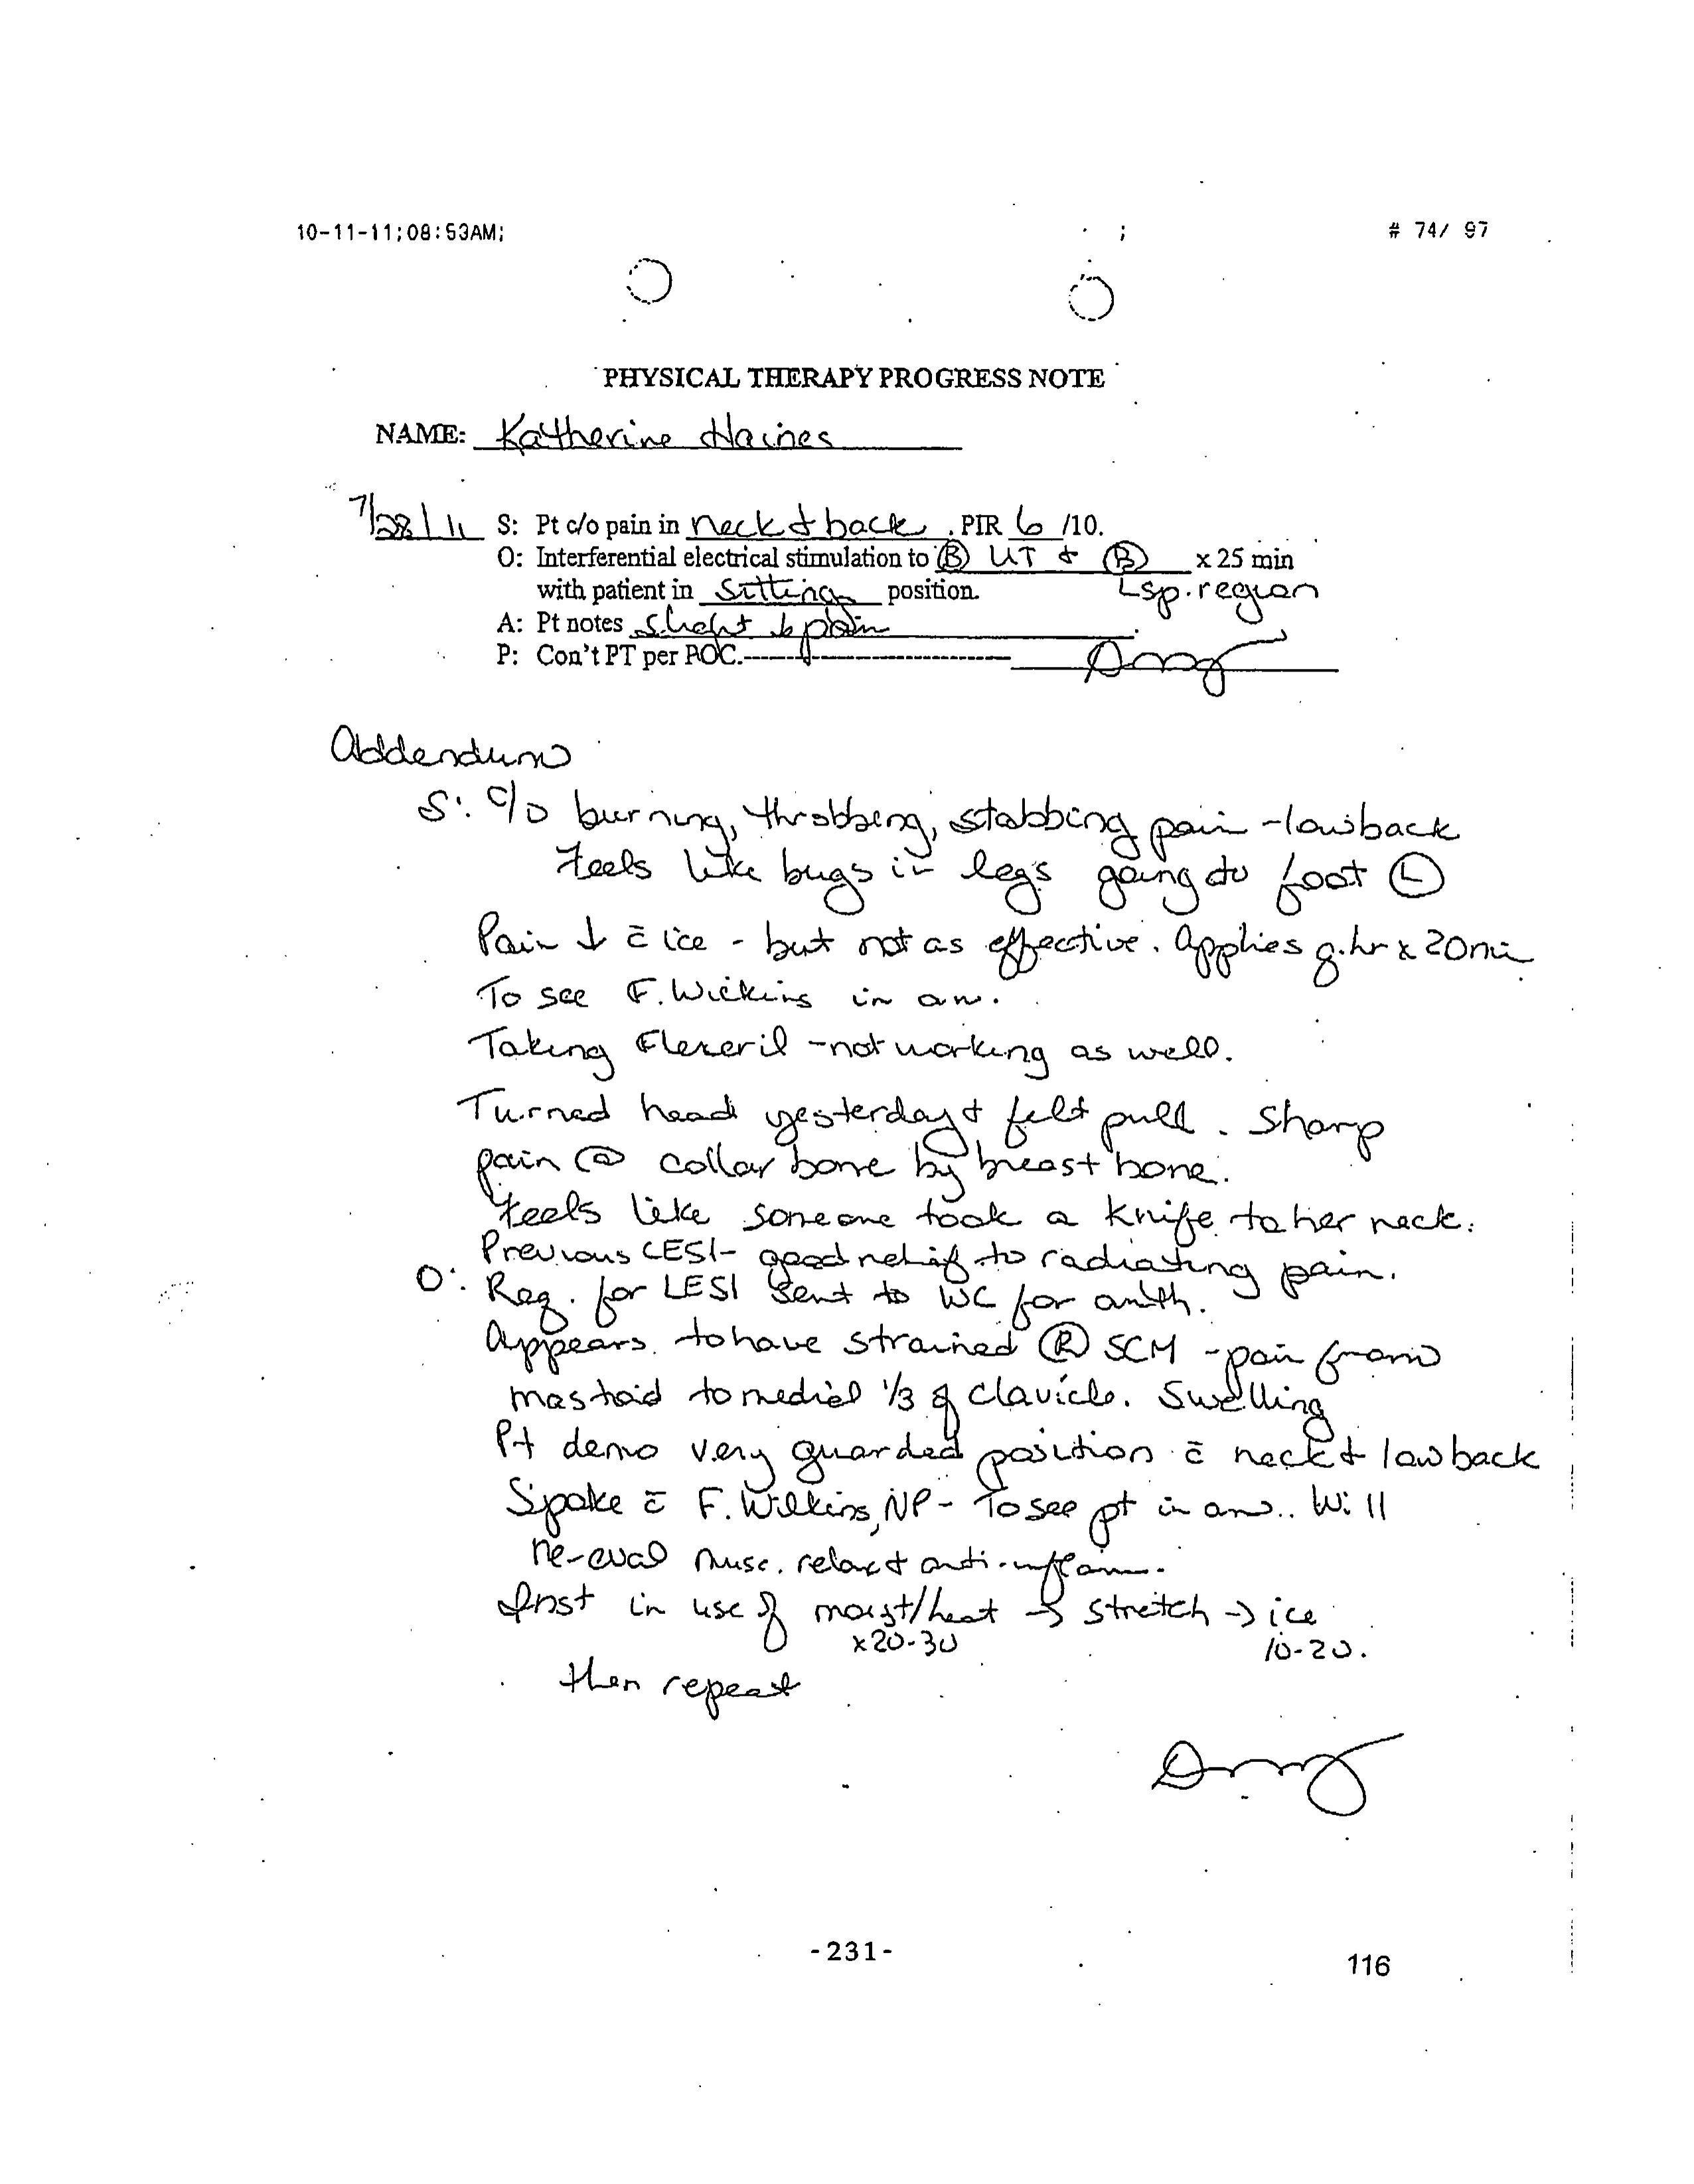 10-11-11;08:53AM; ; # 74/ 97
PHYSICAL THERAPY PROGRESS NOTE
NAME: Katherine Haines
7/28/11 S: Pt c/o pain in neck & back. PIR 6 /10.
O: Interferential electrical stimulation to Ⓑ UT & Ⓑ x 25 min
with patient in sitting position. Lsp. region
A: Pt notes slight ↓ pain.
P: Con't PT per POC.
Addendum
S: c/o burning, throbbing, stabbing pain - low back
Feels like bugs in legs going to foot Ⓛ
Pain ↓ c̄ ice - but not as effective. Applies q.hr x 20 min
To see F. Wilkins in am.
Taking Flexeril - not working as well.
Turned head yesterday & felt pull. Sharp
pain @ collar bone by breast bone.
Feels like someone took a knife to her neck.
Previous CESI - good relief to radiating pain.
O: Req. for LESI sent to WC for auth.
Appears to have strained Ⓡ SCM - pain from
mastoid to medial 1/3 of clavicle. Swelling
Pt demo very guarded position c̄ neck & low back
Spoke c̄ F. Wilkins, NP - To see pt in am.. Will
re-eval musc. relax & anti-inflam.
Inst in use of moist/heat → stretch → ice
x20-30 10-20.
then repeat
-231-
116